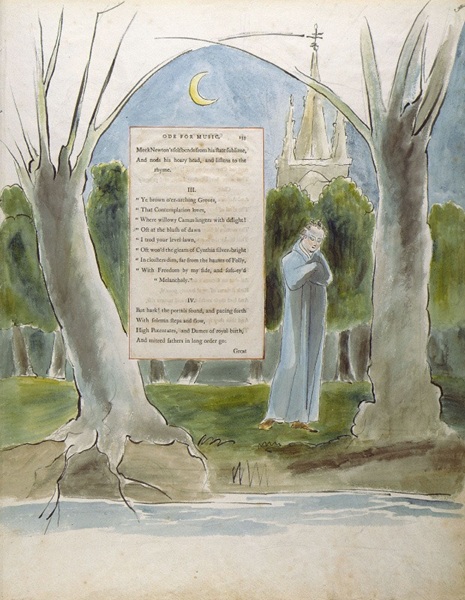 ODE FOR MUSIC.
Meek Newton's ſelf bends from his ſtate ſublime,
And nods his hoary head, and liſtens to the
rhyme.
III.
" Ye brown o'er-arching Groves,
" That Contemplation loves,
" Where willowy Camus lingers with delight!
" Oft at the bluſh of dawn
" I trod your level lawn,
" Oft woo'd the gleam of Cynthia ſilver-bright
" In cloiſters dim, far from the haunts of Folly,
" With Freedom by my ſide, and ſoft-ey'd
" Melancholy."
IV.
But hark! the portals ſound, and pacing forth
With ſolemn ſteps and ſlow,
High Potentates, and Dames of royal birth,
And mitred fathers in long order go:
Great